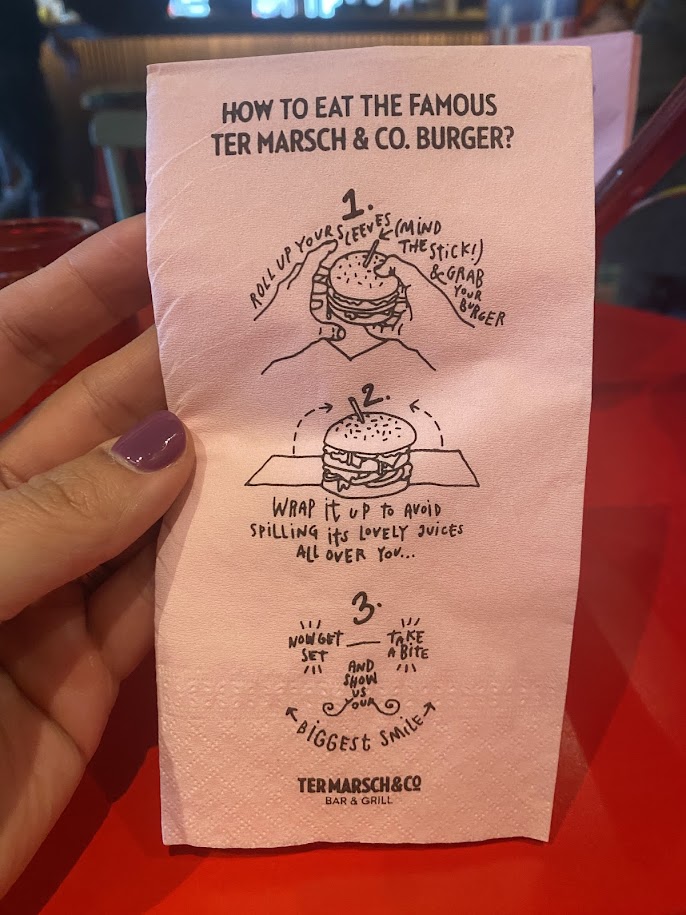 HOW TO EAT THE FAMOUS
TER MARSCH & CO. BURGER?
1.
ROLL UP YOUR SLEEVES
(MIND
THE STICK!)
& GRAB
YOUR
BURGER
2.
WRAP it UP to AVOID
SPILLING its LOVELY JUICES
ALL OVER YOU...
3.
NOW GET
SET
TAKE
A BITE
AND
SHOW
US
YOUR
BIGGEST SMILE
TER MARSCH & CO
BAR & GRILL